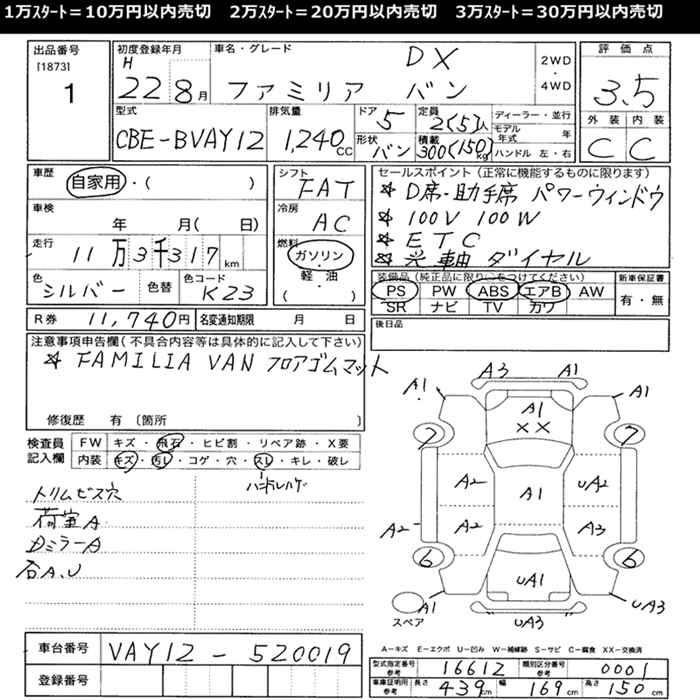 1万スタート=10万円以内売切 2万スタート=20万円以内売切 3万スタート=30万円以内売切
出品番号
[1873]
1
初度登録年月
H
22 8月
車名・グレード
DX
ファミリア バン
2WD
・
4WD
評価点
3.5
外装 内装
C C
型式
CBE-BVAY12
排気量
1,240cc
ドア
5
形状
バン
定員
2(5)人
積載
300(150)kg
ディーラー・並行
モデル年式 年
ハンドル 左・右
車歴
自家用・( )
車検
年 月( 日)
走行
11万3千317km
色
シルバー
色替
色コード
K23
シフト
FAT
冷房
AC
燃料
ガソリン・
軽・油
( )
セールスポイント(正常に機能するものに限ります)
☆ D席・助手席 パワーウィンドウ
☆ 100V 100W
☆ ETC
☆ 光軸ダイヤル
装備品(純正品に限り○をつけてください)
PS PW ABS エアB AW
SR ナビ TV カワ
新車保証書
有・無
R券 11,740円
名変通知期限 月 日
後日品
注意事項申告欄(不具合内容等は具体的に記入して下さい)
☆ FAMILIA VAN フロアゴムマット
修復歴 有〔箇所 〕
検査員
記入欄
FW キズ・飛石・ヒビ割・リペア跡・X要
内装 キズ・汚レ・コゲ・穴・スレ・キレ・破レ
ハンドルハゲ
トリムビス穴
荷室A
Dミラー A
右A.U
A3 A1
A1 A1
A1
XX
7 7
A2 A1 UA2
A2 A2 A3
6 6
UA1
スペア
A1 UA3
UA3
A−キズ E−エクボ U−凹み W−補修跡 S−サビ C−腐食 XX−交換済
車台番号 VAY12-520019
登録番号
型式指定番号
参考
16612
類別区分番号
参考
0001
車庫証明用
参考
長さ 439cm 幅 169cm 高さ 150cm